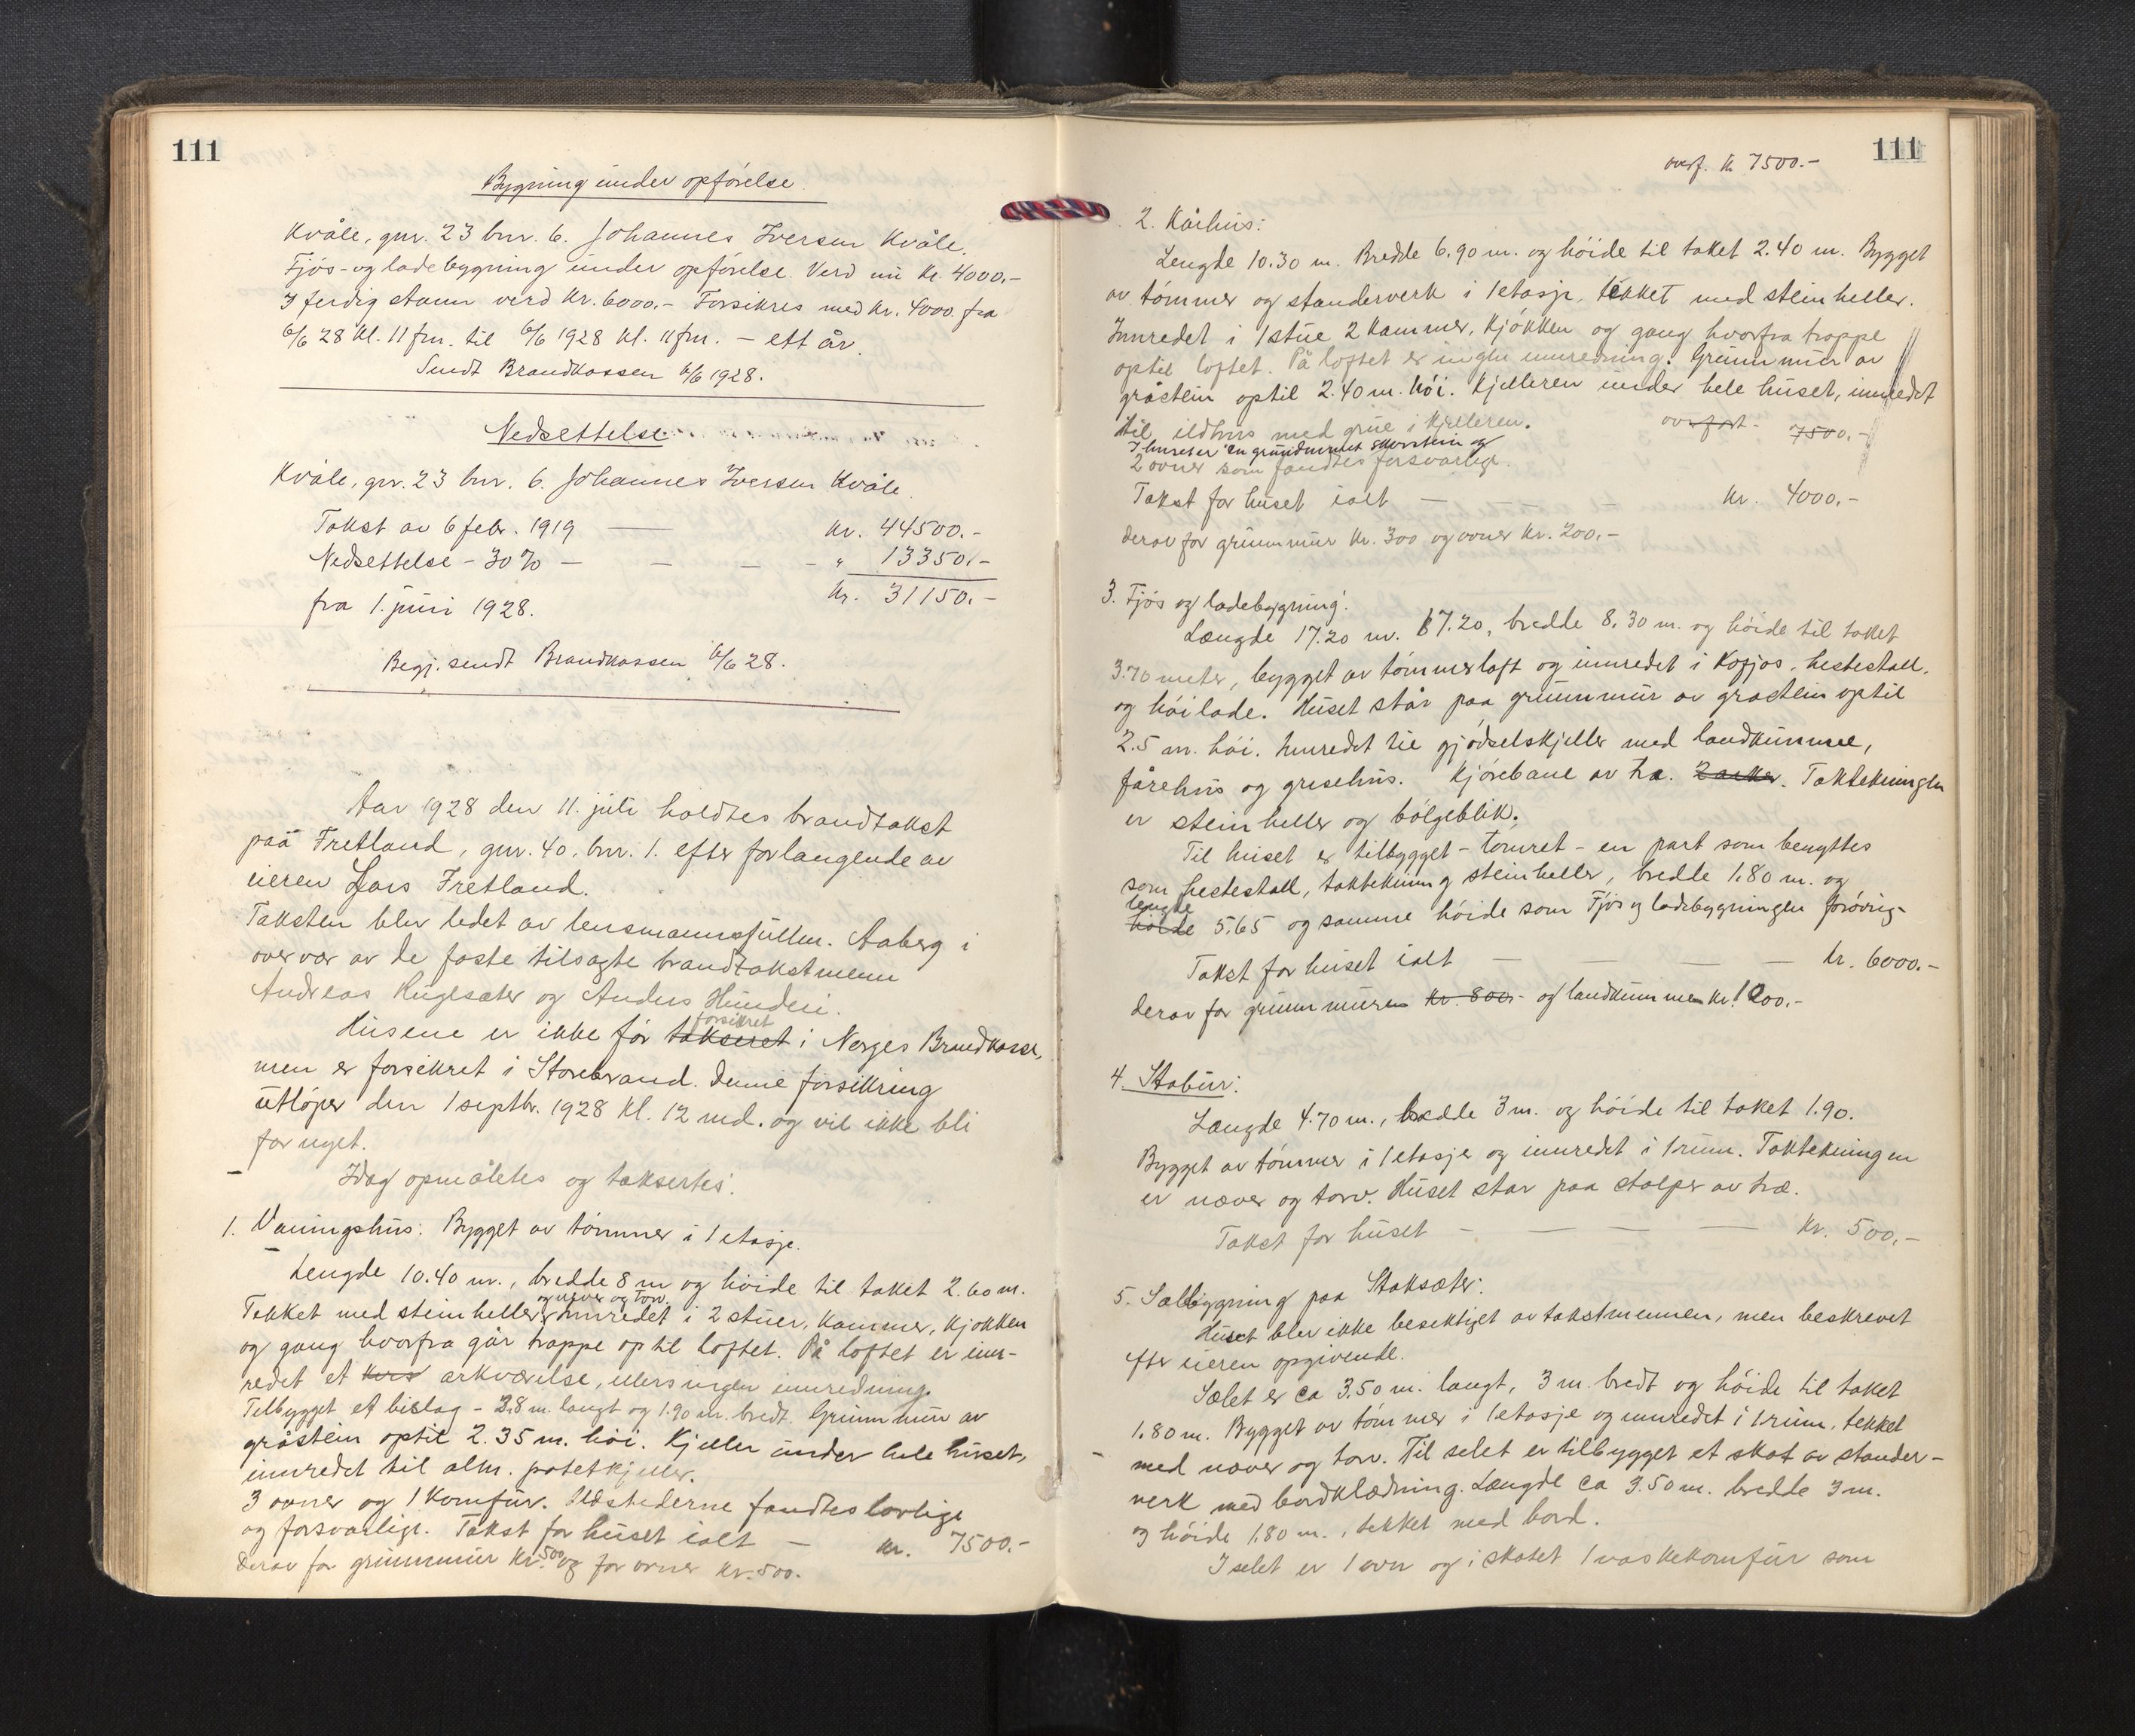 111
Bygning under opførelse.
Kvåle, gnr. 23 bnr. 6. Johannes Iversen Kvåle.
Fjøs- og ladebygning under opførelse. Verd nu kr. 4000.-
I ferdig stann verd kr. 6000.- Forsikres med kr. 4000 fra
6/6 28 kl. 11 fm. til 6/6 1928 kl. 11 fm. - ett år.
Sendt Brandkassen 6/6 1928.
Nedsettelse
Kvåle, gnr. 23 bnr. 6. Johannes Iversen Kvåle.
Takst av 6 febr. 1919 — kr. 44500.-
Nedsettelse - 30% - - - - " 13350.-
fra 1. juni 1928. kr. 31150.-
Begj. sendt Brandkassen 6/6 28.
Aar 1928 den 11. juli holdtes brandtakst
paa Fretland, gnr. 40, bnr. 1. efter forlangende av
eieren Lars Fretland.
Taksten blev ledet av lensmannsfullm. Aaberg i
overvær av de faste tilsagte brandtakstmenn
Andreas Huglesæter og Anders Hunderi.
forsikret
Husene er ikke før takseret i Norges Brandkasse,
men er forsikret i Storebrand. Denne forsikring
utløper den 1 septbr. 1928 kl. 12 md. og vil ikke bli
fornyet.
Idag opmåltes og taksertes:
1. Vaningshus: Bygget av tømmer i 1 etasje.
Lengde 10.40 m., bredde 8 m og høide til taket 2.60 m.
og never og torv.
Tekket med steinheller, innredet i 2 stuer, kammer, kjøkken
og gang hvorfra går trappe op til loftet. På loftet er inn-
redet et arkværelse, ellers ingen innredning.
Tilbygget et bislag - 3.8 m. langt og 1.90 m. bredt. Grunnmur av
gråstein optil 2.35 m. høi. Kjeller under hele huset,
innredet til alm. potetkjeller.
3 ovner og 1 komfur. Ildstederne fandtes lovlige
og forsvarlige. Takst for huset ialt - kr. 7500.-
Derav for grunnmur kr. 500 og for ovner kr. 500.
111
overf. kr 7500.-
2. Kårhus:
Lengde 10.30 m. Bredde 6.90 m. og høide til taket 2.40 m. Bygget
av tømmer og standerverk i 1 etasje, tekket med steinheller.
Innredet i 1 stue 2 kammer, kjøkken og gang hvorfra trappe
optil loftet. På loftet er ingen innredning. Grunnmur av
gråstein optil 2.40 m. høi. Kjelleren under hele huset, innredet
til ildhus med grue i kjelleren. overført - 7500.-
I huset er en grundmuret skorstein og
2 ovner som fandtes forsvarlige.
Takst for huset ialt - - - kr. 4000.-
Derav for grunnmur kr. 300 og ovner kr. 200.-
3. Fjøs og ladebygning:
Længde 17.20 m. 17.20, bredde 8.30 m. og høide til taket
3.70 meter, bygget av tømmerloft og innredet i kofjøs, hestestall,
og høilade. Huset står paa grunnmur av gråstein optil
2.5 m. høi. Innredet til gjødselskjeller med landkummee,
fårehus og grisehus. Kjørebane av tre. Taktekningen
er steinheller og bølgeblik.
Til huset er tilbygget - tømret - en part som benyttes
som hestestall, taktekning steinheller, bredde 1.80 m. og
lengde
høide 5.65 og samme høide som Fjøs og ladebygningen forøvrig-
Takst for huset ialt - - - - kr. 6000.-
Derav for grunnmuren kr. 800.- og landkummen kr. 1200.-
4. Stabur:
Længde 4.70 m., bredde 3 m. og høide til taket 1.90.
Bygget av tømmer i 1 etasje og innredet i 1 rum. Taktekningen
er næver og torv. Huset står paa stolper av træ.
Takst for huset - - - - kr. 500.-
5. Sælbygning paa Staksæter:
Huset blev ikke besiktiget av takstmennen, men beskrevet
efter eieren opgivende.
Sælet er ca 3.50 m. langt, 3 m. bredt og høide til taket
1.80 m. Bygget av tømmer i 1 etasje og innredet i 1 rum, tekket
med næver og torv. Til selet er tilbygget et skot av stander-
verk med bordklædning. Længde ca 3.50 m. bredde 3 m.
og høide 1.80 m., tekket med bord.
I selet er 1 ovn og i skotet 1 vaskekomfur som